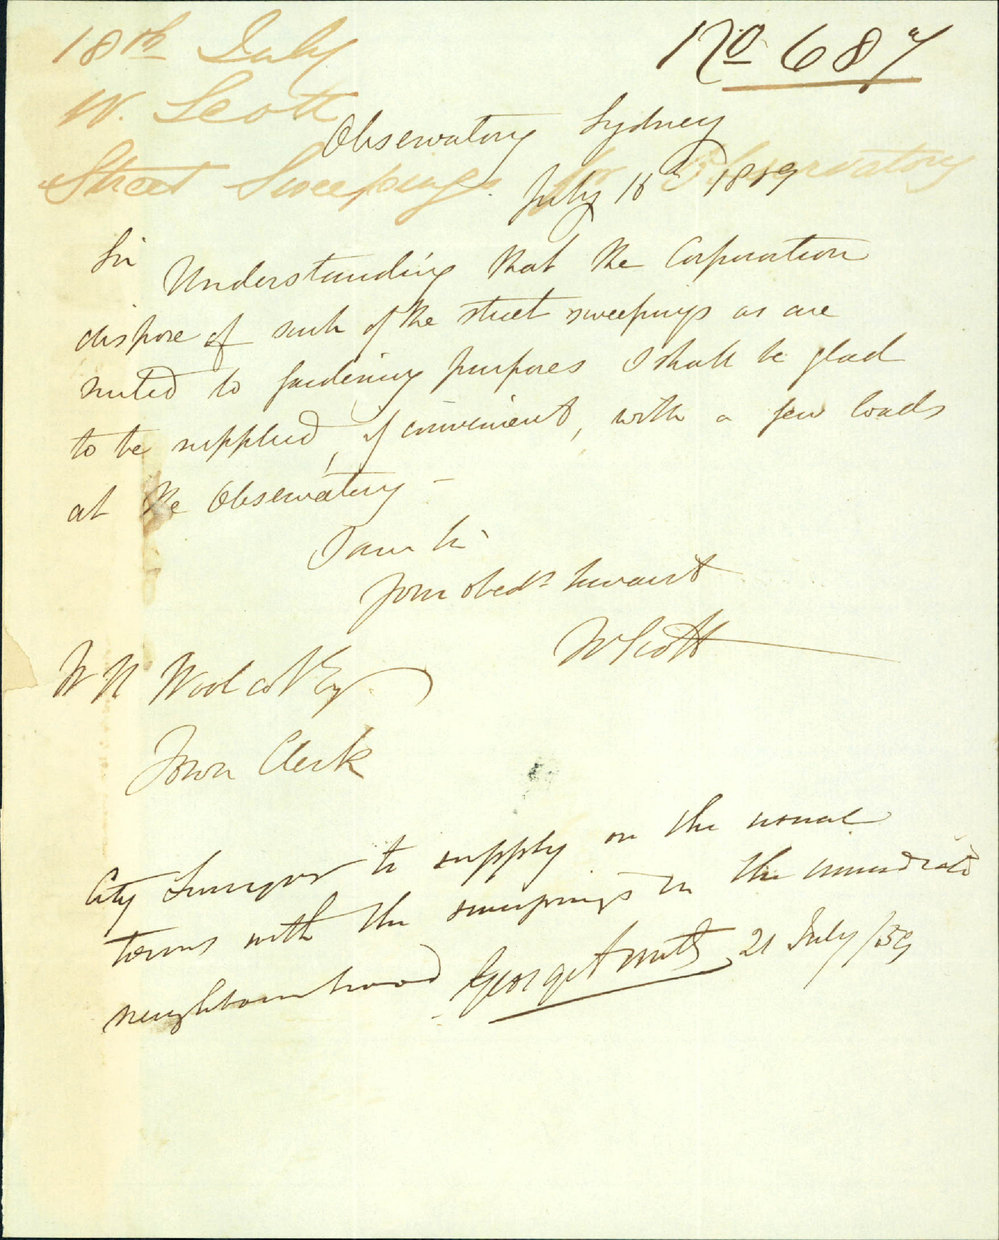 18th July
No 687
W. Scott
Street Sweepings for Observatory
Observatory Sydney
July 18th 1859
Sir
Understanding that the Corporation
dispose of such of the street sweepings as are
suited to gardening purposes I shall be glad
to be supplied, if convenient, with a few loads
at the Observatory -
I am Sir
Your obedt servant
W Scott
W H Woolcott Esq
Town Clerk
City Surveyor to supply on the usual
terms with the sweepings in the immediate
neighbourhood George Smith 21 July /59